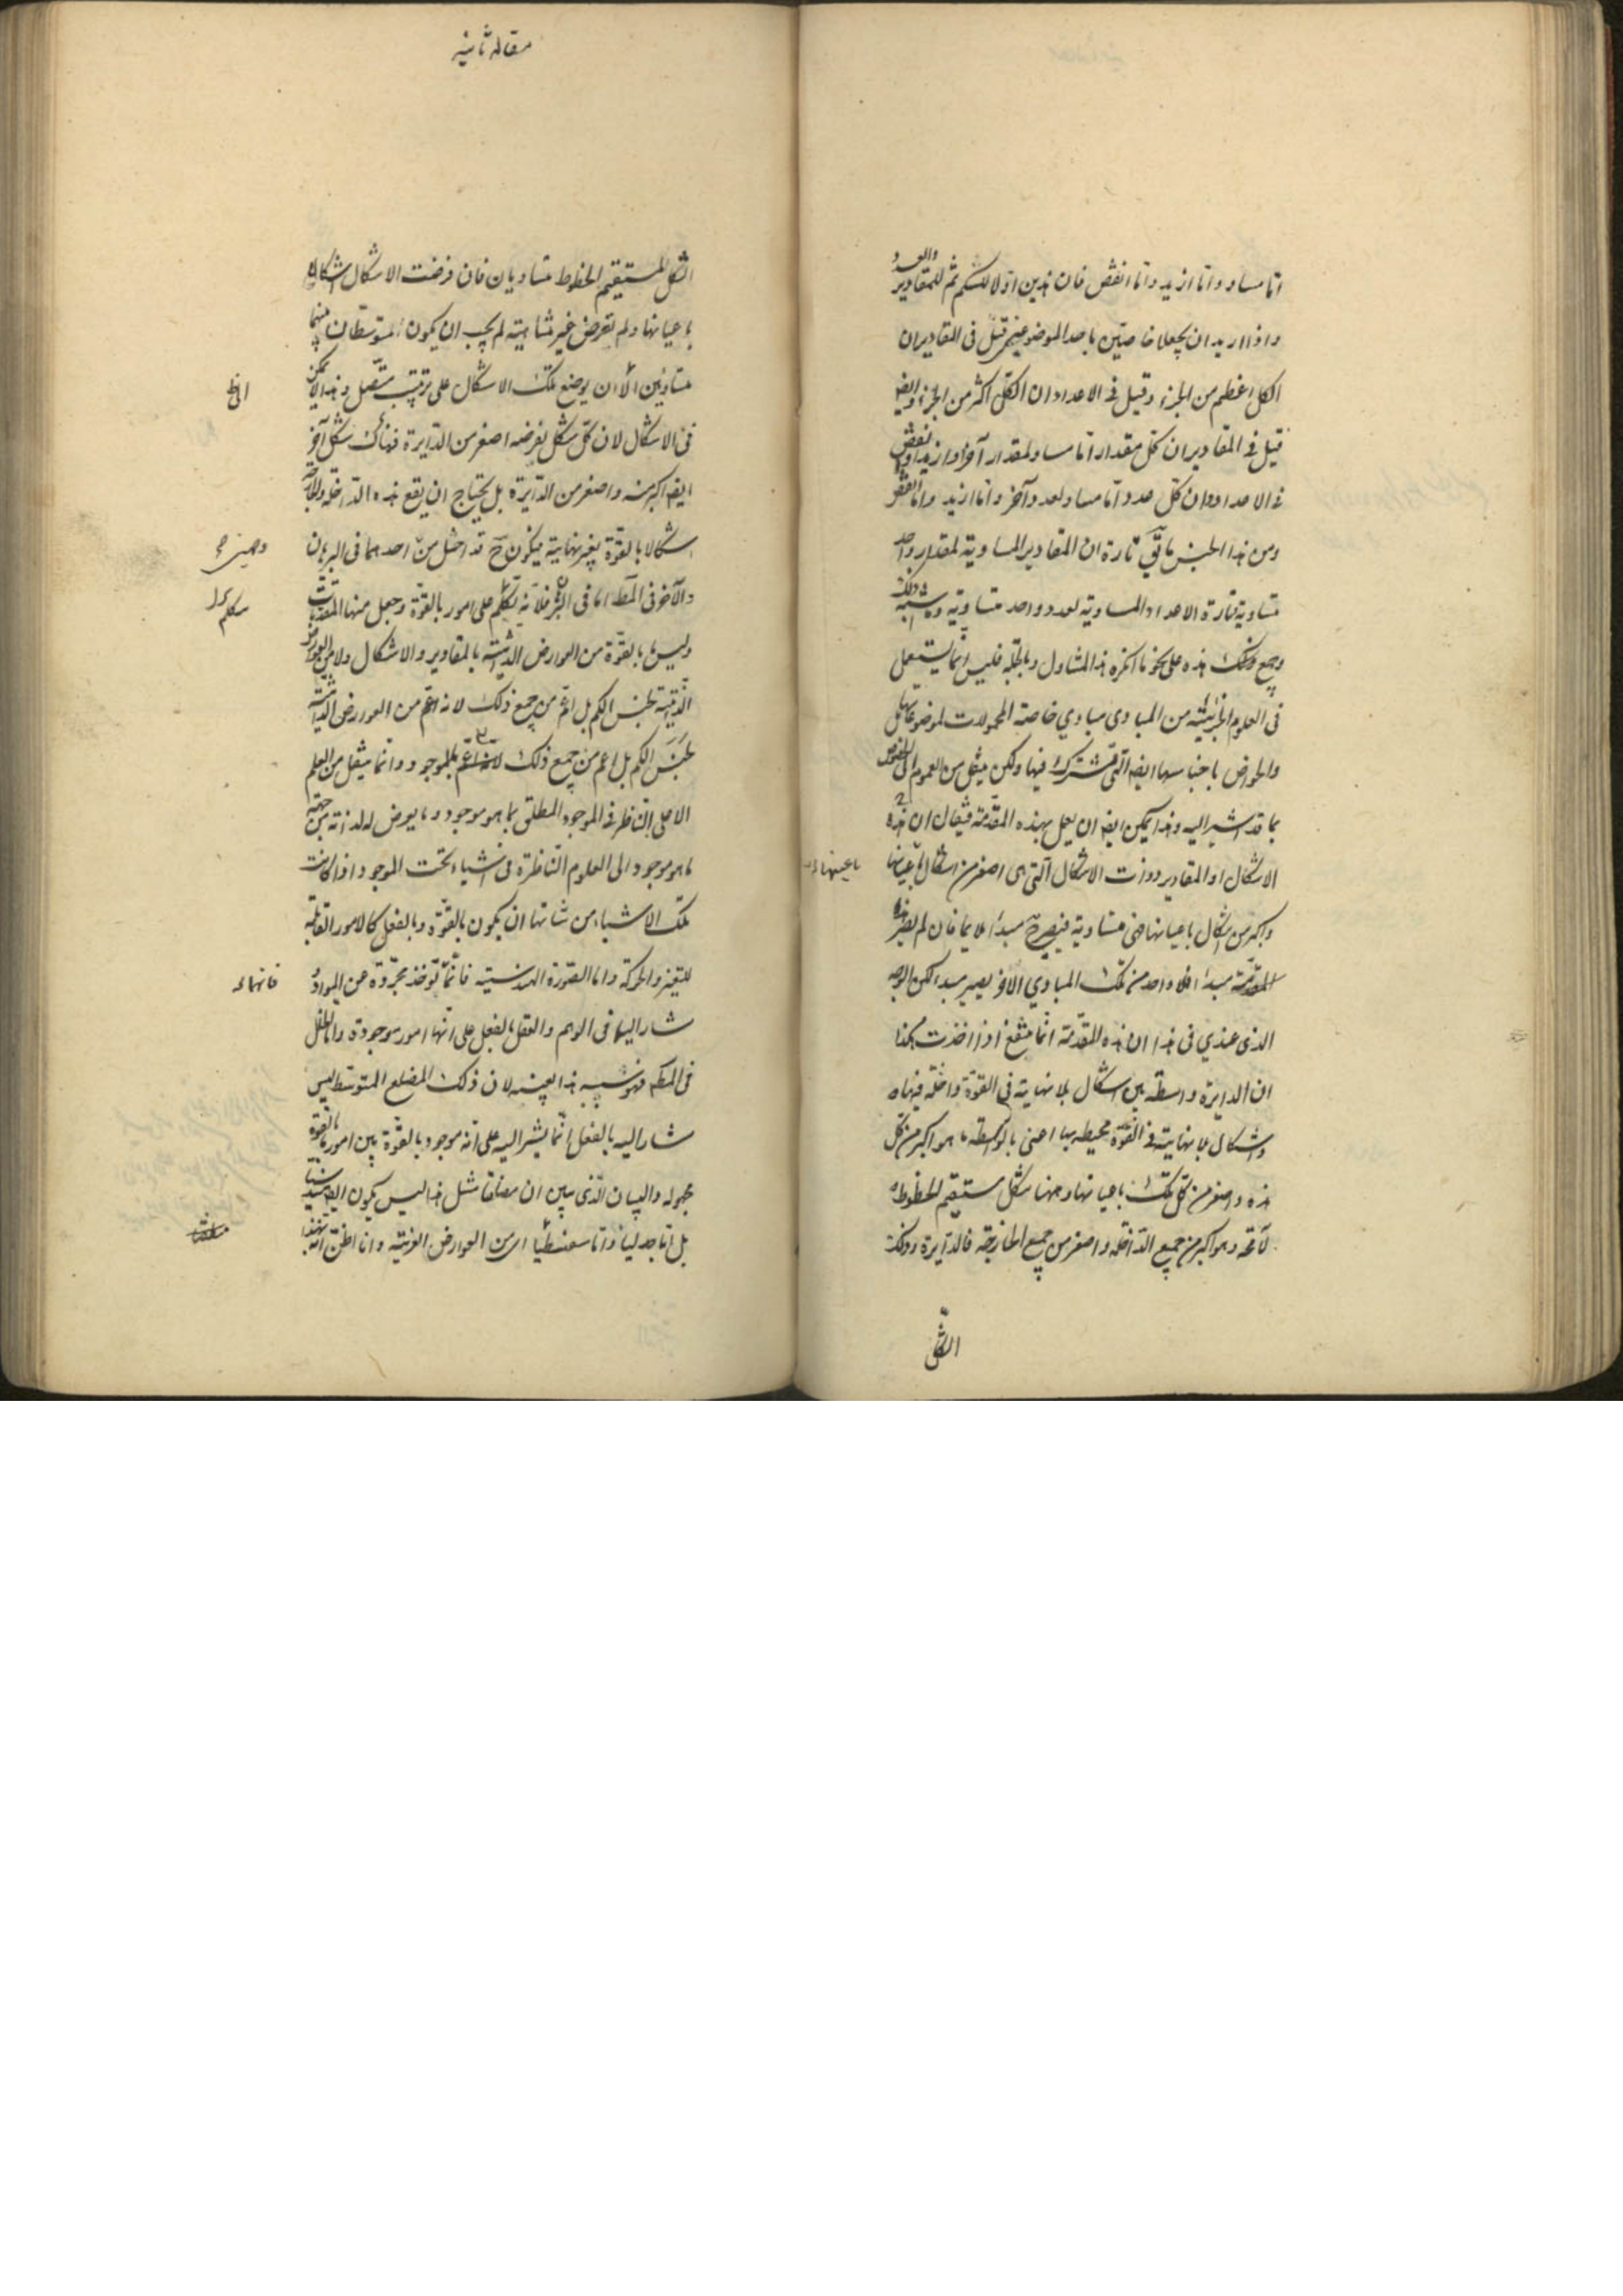 اما مساو واما ازيد واما انقص فان هذين اولا للكم ثم للمقادير والعدد
واذا اريد ان يجعلا خاصتين باحد الموضوعين قيل فى المقادير ان
الكل اعظم من الجزء وقيل فى الاعداد ان الكل اكثر من الجزء وايضا
قيل فى المقادير ان كل مقدار اما مساو لمقدار آخر او ازيد او انقص
فى الاعداد ان كل عدد اما مساو لعدد آخر واما ازيد واما انقص
ومن هذا الجنس ما تارة ان المقادير المساوية لمقدار واحد
متساوية وتارة الاعداد المساوية لعدد واحد متساوية وما شبه ذلك
وجميع ذلك هذه على نحو ما انكره هذا المتناول وبالجملة فليس انما يستعمل
فى العلوم الجزئية من المبادى مبادي خاصة المحمولات لموضوعاتها بل
والعوارض باجناسها ايضا التى تشترك فيها ولكن ينقل من العموم الى الخصوص
بما قد اشير اليه وهذا يمكن ايضا ان يعمل بهذه المقدمة فيقال ان هذه
الاشكال او المقادير ذوات الاشكال التى هى اصغر من اشكال باعيانها
باعينها
واكبر من اشكال باعيانها هى متساوية فيصير ح مبدأ ملايما فان لم يصر هذه
المقدمة مبدأ فلا واحد من تلك المبادي الاخر يصير مبدء لكن الوجه
الذى عندي فى هذا ان هذه المقدمة انما تنفع اذا اخذت هكذا
ان الدايرة واسطة بين اشكال بلا نهاية فى القوة داخلة فيها و
واشكال بلا نهاية فى القوة محيطه بها اعنى بالواسطه ما هو اكبر من كل
هذه واصغر من كل تلك باعيانها وههنا شكل مستقيم الخطوط
لا محة وهو اكبر من جميع الداخلة واصغر من جميع الخارجة فالدايرة وذلك
الشكل
مقاله ثانيه
الشكل المستقيم الخطوط متساويان فان فرضت الاشكال اشكالا
باعيانها ولم تفرض غير متناهية لم يجب ان يكون المتوسطان منها
متساويين الا ان يوضع تلك الاشكال على ترتيب متصل وهذا لا يمكن
فى الاشكال لان كل شكل نفرضه اصغر من الدايرة فهناك شكل آخر
ايضا اكبر منه واصغر من الدايرة بل يحتاج ان يقع هذه الداخلة والخارجة
اشكالا بالقوة بغير نهاية فيكون ح قد اختل من احدهما فى البرهان
والآخر فى المط اما فى البرهان فلانه تكلم على امور بالقوة وجعل منها المقدمات
وليس ما بالقوة من العوارض الذاتية بالمقادير والاشكال ولا من العوارض
الذاتية لجنس الكم بل اعم من جميع ذلك لانه اعم من العوارض الذاتية
لجنس الكم بل اعم من جميع ذلك بالموجود وانما ينقل من العلم
الاعلى الناظر فى الموجود المطلق بما هو موجود وما يعرض له لذاته من جهة
ما هو موجود الى العلوم الناظرة فى اشياء تحت الموجود اذا كانت
تلك الاشياء من شانها ان يكون بالقوة وبالفعل كالامور القابلة
للتغير والحركة واما الصورة الهندسية فانما تؤخذ مجردة عن المواد
فانها
مشار اليها فى الوهم والعقل بالفعل على انها امور موجودة واما الخلل
فى المط فهو شبيه بهذا بعينه لان ذلك المضلع المتوسط ليس
مشارا اليه بالفعل انما يشير اليه على انه موجود بالقوة بين امور بالقوة
مجهوله والبيان الذى يبين ان مضلعا مثل هذا ليس يكون ايضا هندسيا
بل اما جدليا واما سفسطيا اى من العوارض الغريبة وانا اظن انه